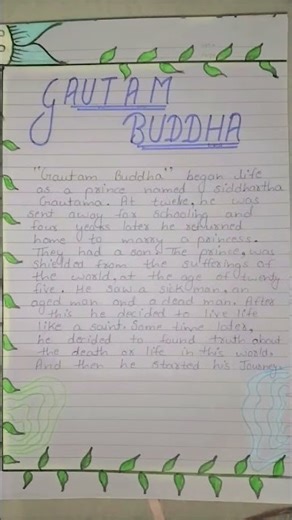 GAUTAM
BUDDHA
"Gautam Buddha" began life
as a prince named siddhartha
Gautama. At twelve, he was
sent away for schooling and
four years later he returned
home to marry a princess.
They had a son. The prince, was
shielded from the sufferings of
the world, at the age of twenty
five. He saw a sick man, an
aged man and a dead man. After
this he decided to live life
like a saint. Some time later,
he decided to found truth about
the death or life in this world.
And then he started his Journey